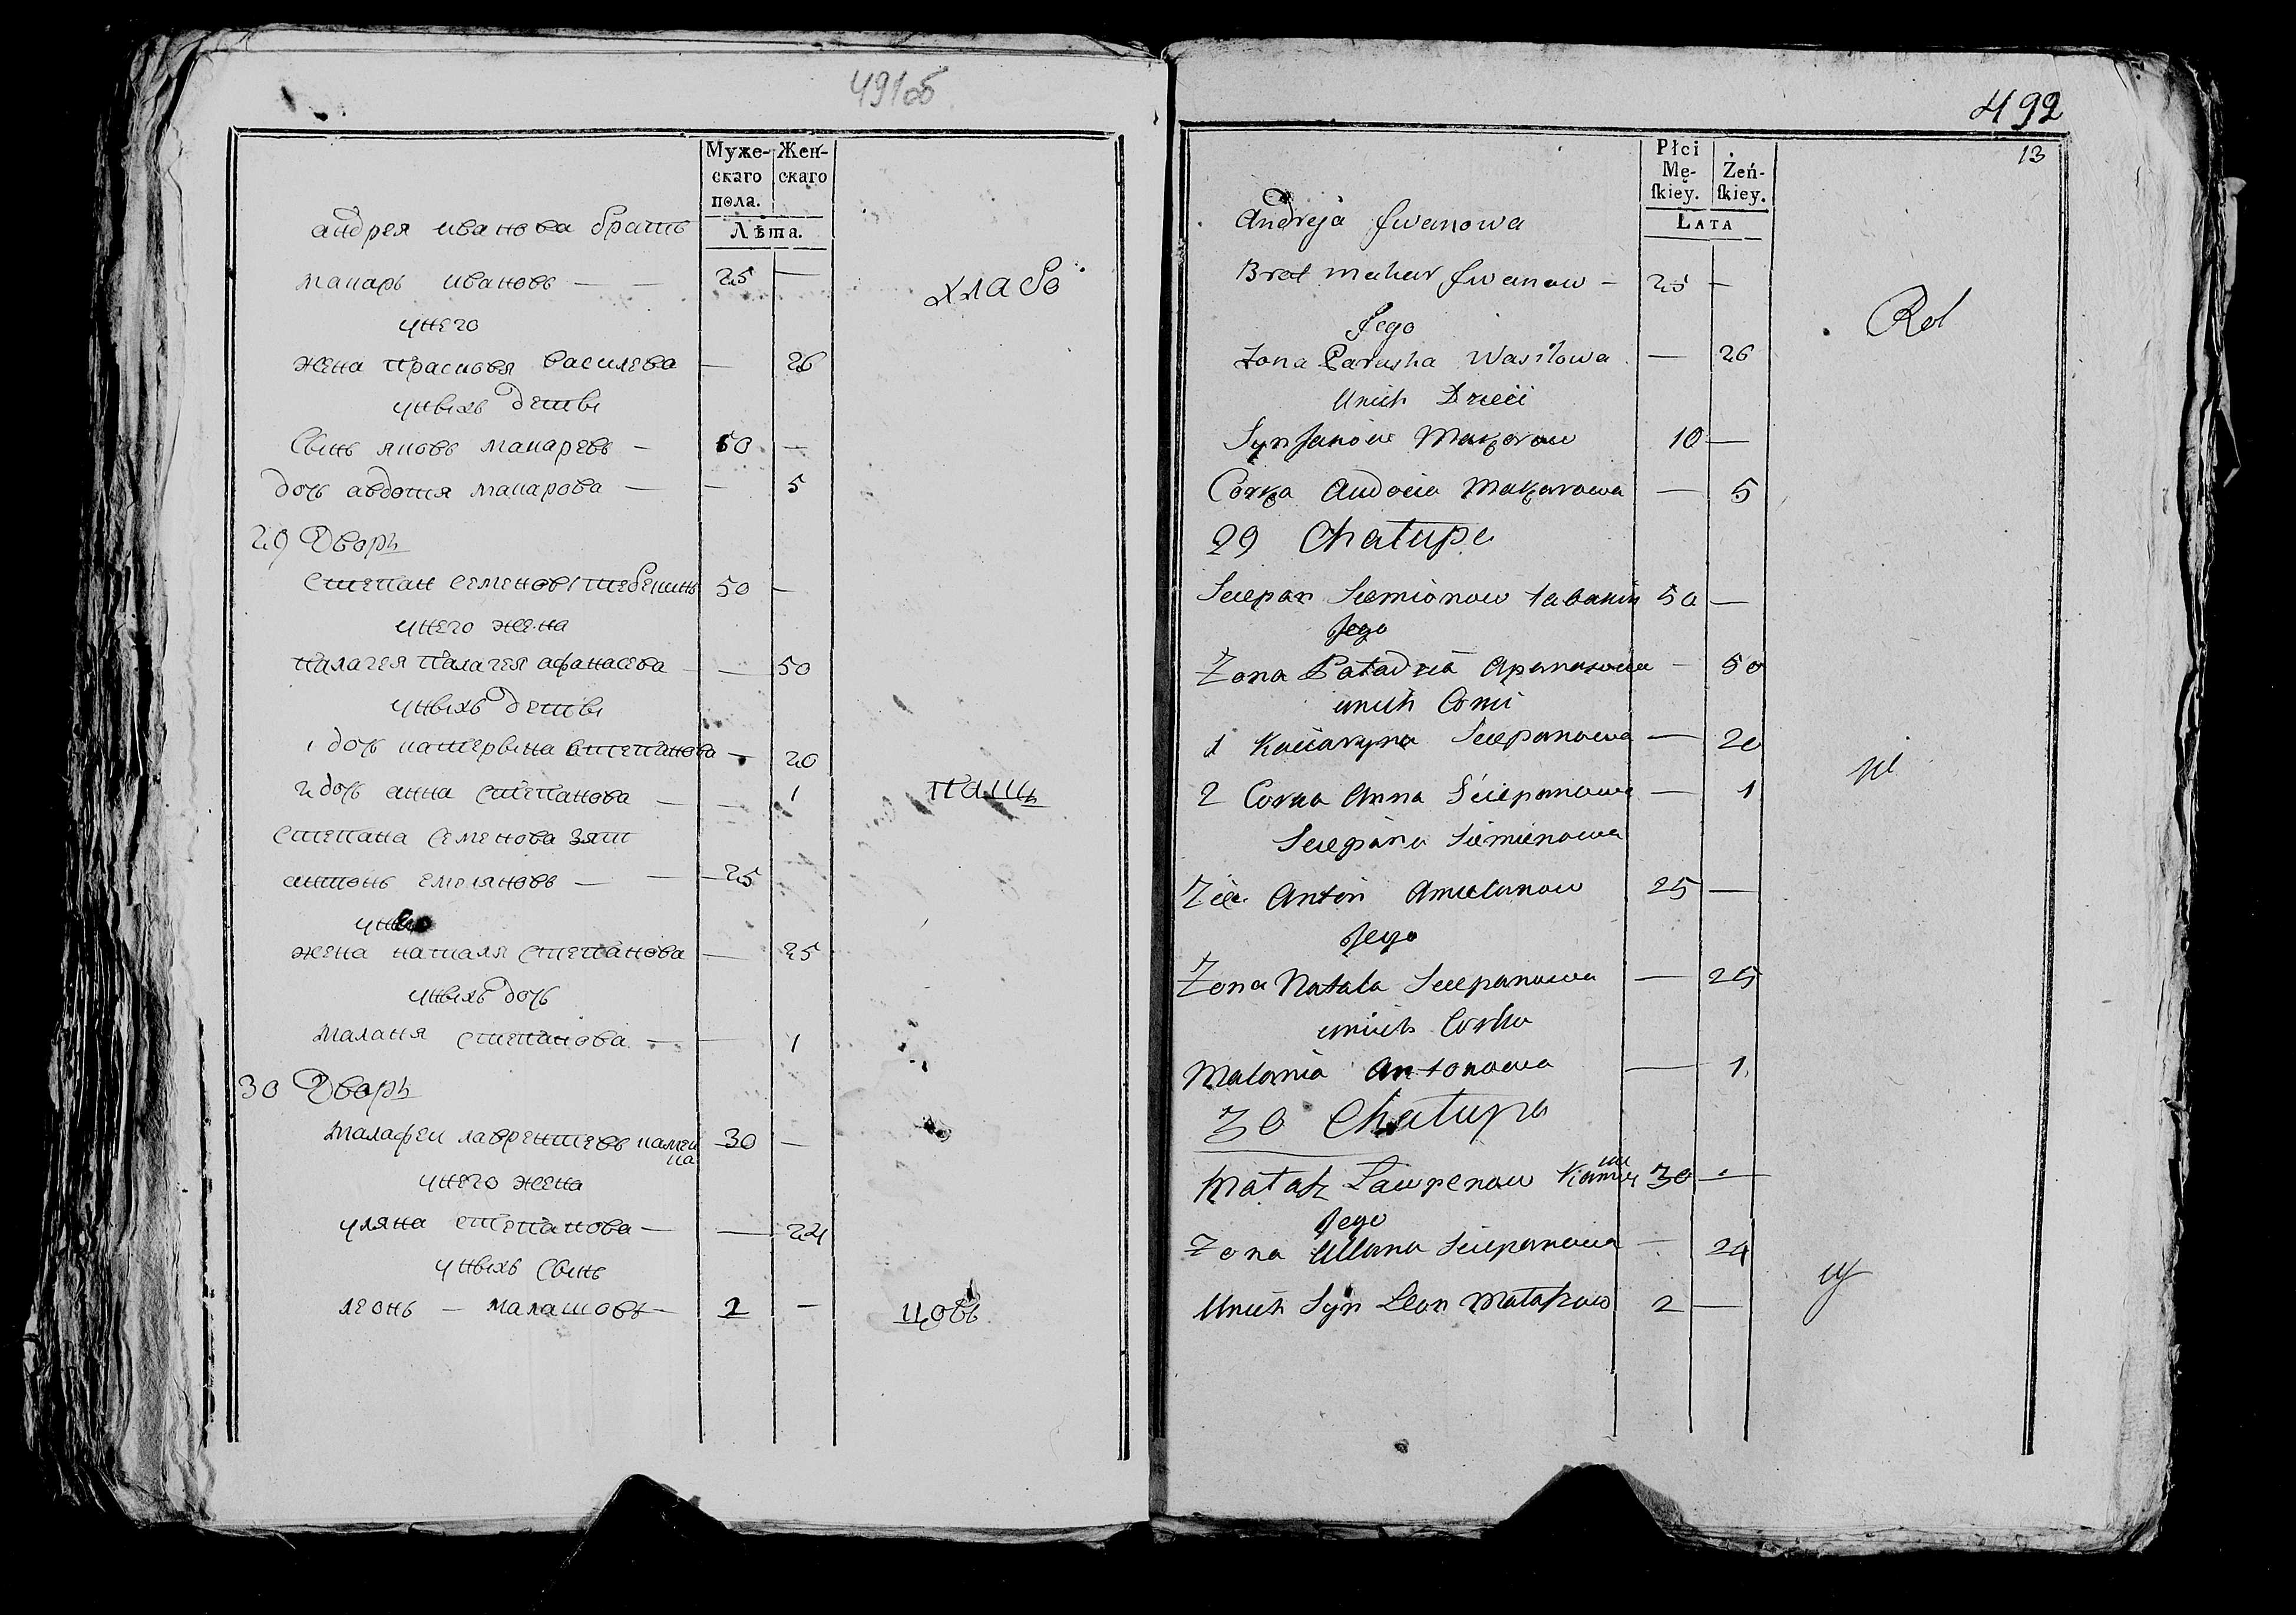 491об
Муже- Жен-
скаго скаго
пола.
Лѣта.
андрея иванова братъ
макаръ ивановъ — — 25 —
унего
жена прасковя василева — 26
унихъ дети
Сынъ яковъ макаровъ — 10 —
дочь авдотя макарова — — 5
29 Дворъ
степан семеновъ 50 —
унего жена
палагея палагея афанасева — — 50
унихъ дети
1 дочь катерына степанова — 20
2 дочь анна степанова — — 1
степана семенова зят
антонъ емеляновъ — — 25
унего
жена наталя степанова — 25
унихъ дочь
маланя степанова — — 1
30 Дворъ
малафеи лаврентевъ 30 —
унего жена
уляна степанова — — 24
унихъ сынъ
леонъ — малашовъ — 2 —
хлабо
пашъ
цовъ
492
13
Płci
Mę- Żeń-
skiey. skiey.
Lata
Andreja Iwanowa
Brat makar Iwanow — 25 —
Jego
Zona Paraska Wasilowa — 26
Unich Dzieci
Syn Makarow 10 —
Corka Audocia Makarowa — 5
29 Chałupa
Sciepan Siemionow 50 —
Jego
Zona Paładzia Apanasowa — 50
unich Corki
1 Kaciaryna Sciepanowa — 20
2 Corka Anna Sciepanowa — 1
Sciepana Siemienowa
Zięć Anton Amielanow 25 —
Jego
Zona Natala Sciepanowa — 25
unich Corka
Malania Antonowa — 1
30 Chałupa
Łaurenow 30 —
Jego
Zona Ullana Sciepanowa — 24
Unich Syn Leon 2 —
Rol
ni
cy